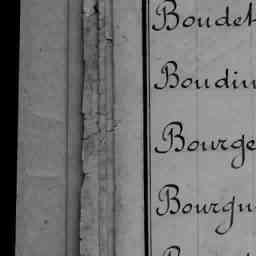 Boudet
Boudin
Bourge
Bourgu